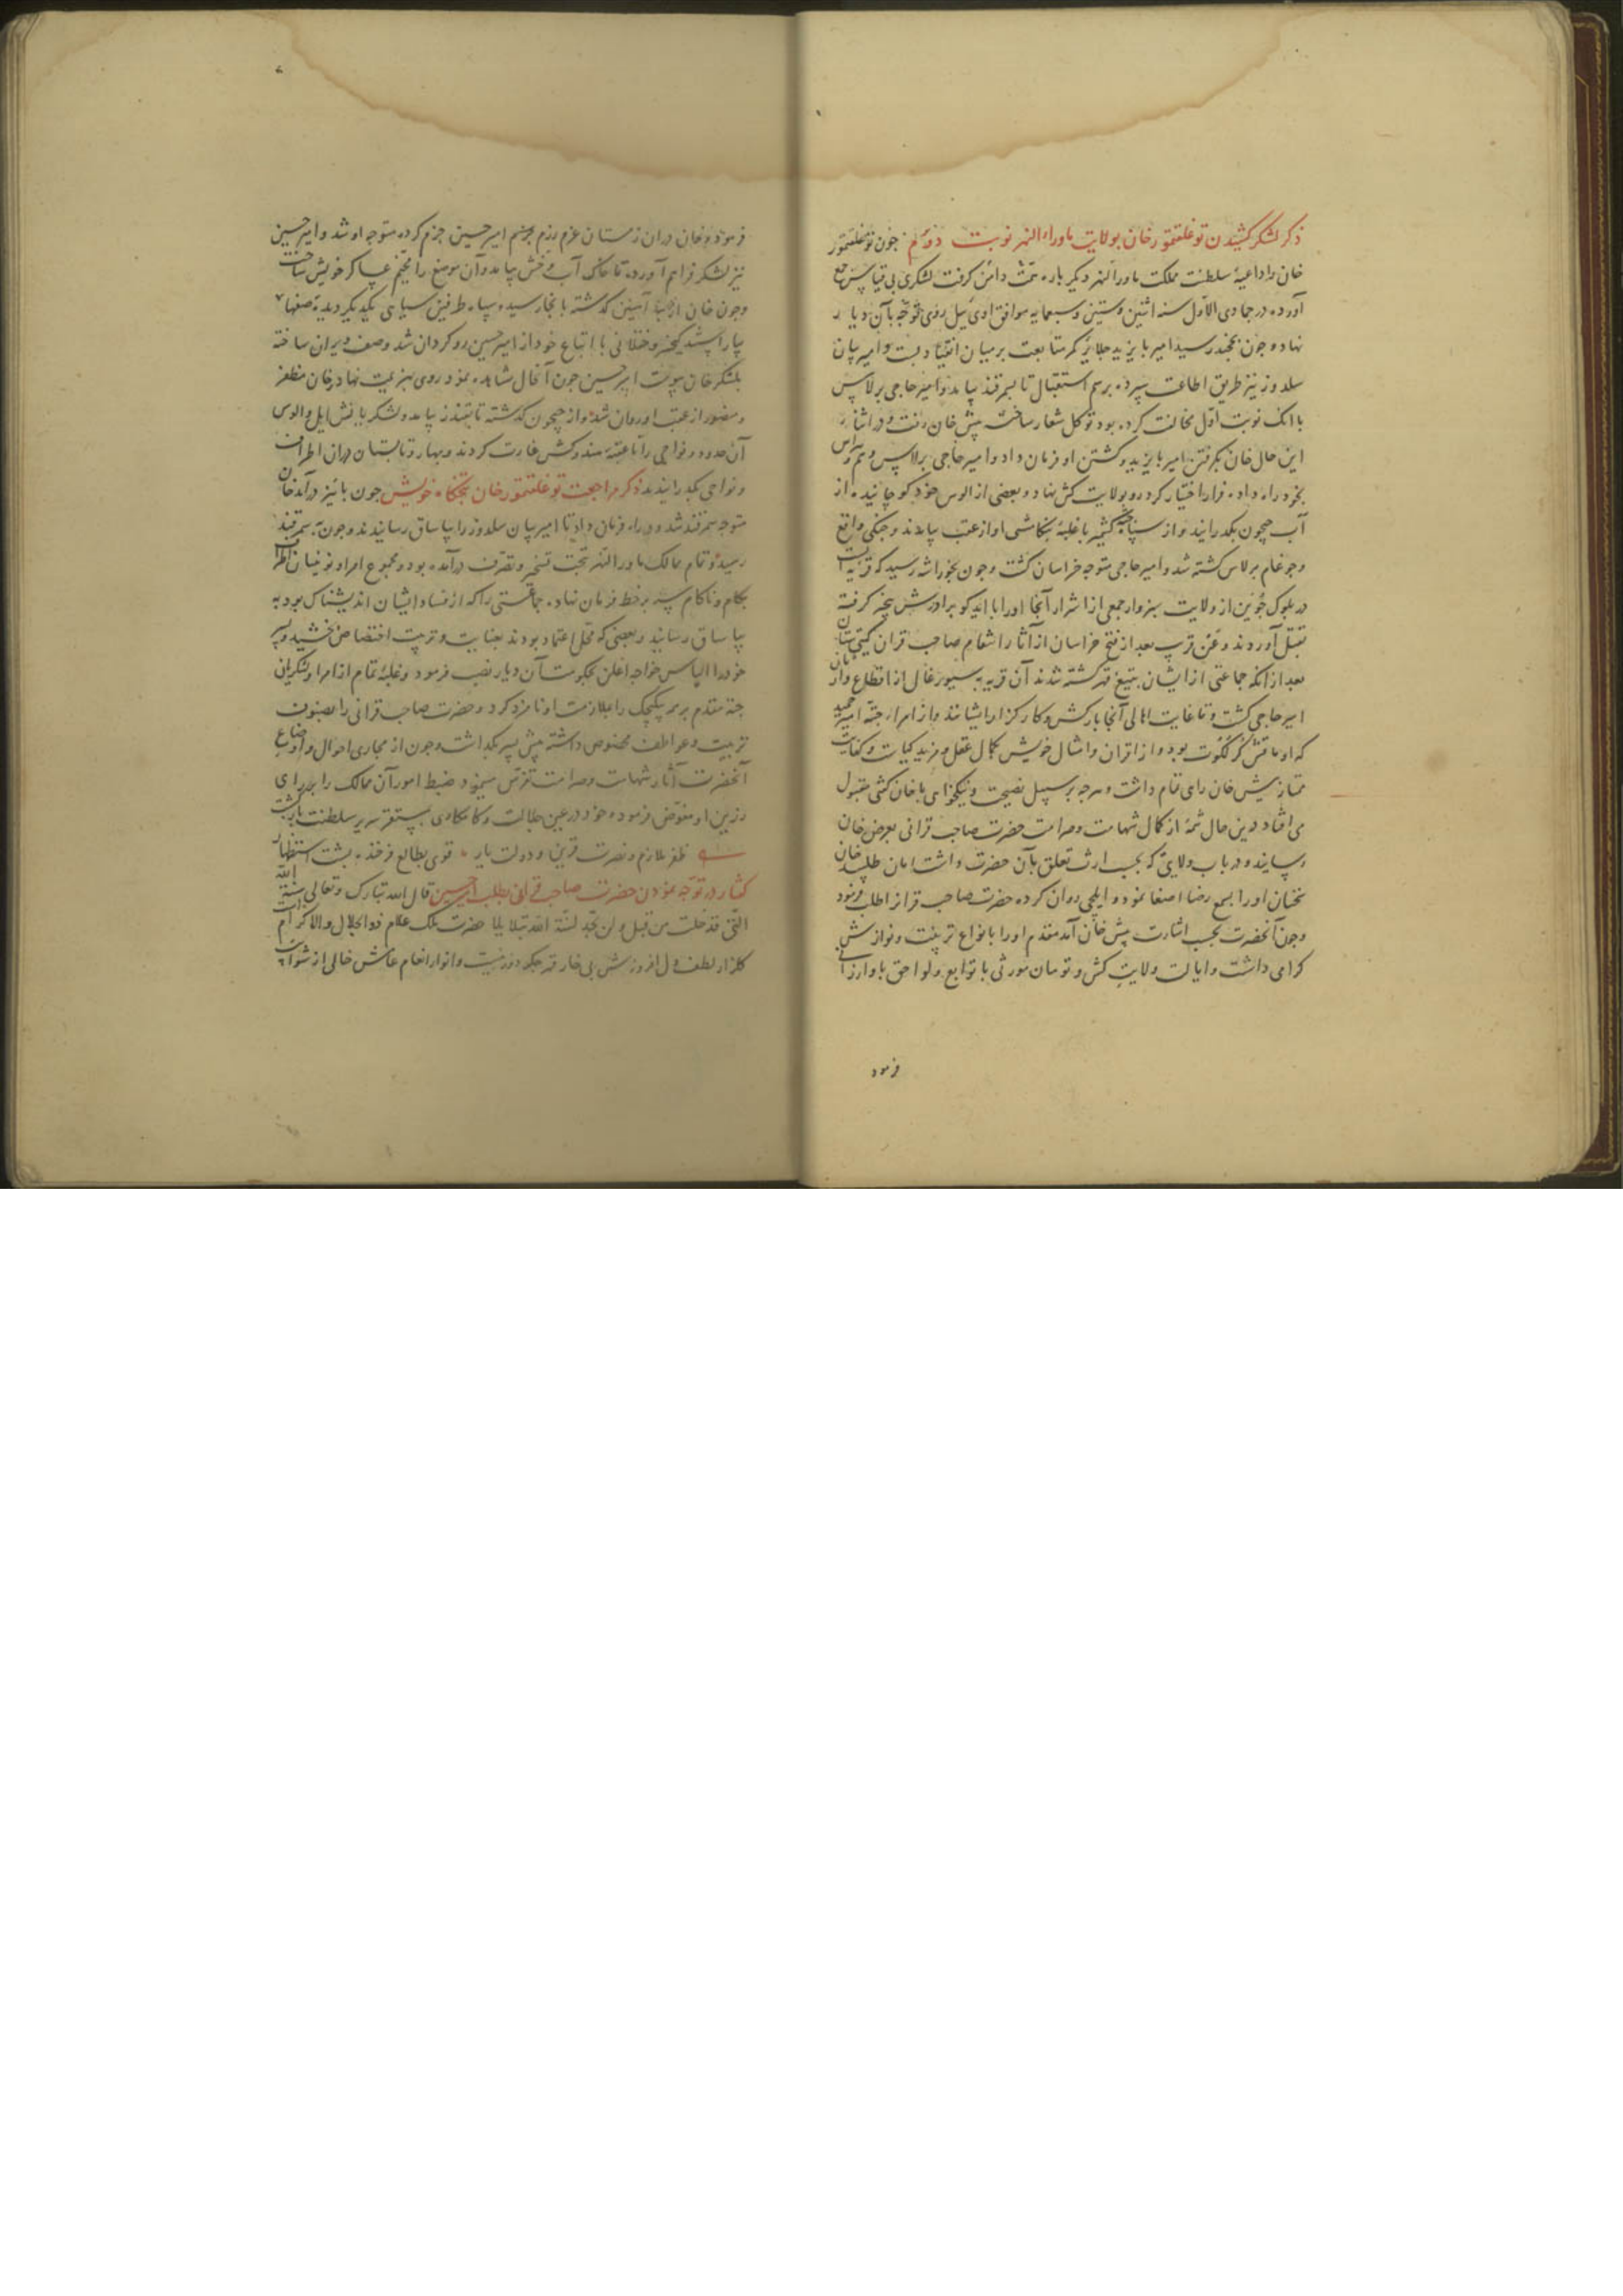 ذکر لشکر کشیدن توغلتمور خان بولایت ماوراء النهر نوبت دوم جون توغلتمور
خان را داعیهٔ سلطنت مملکت ماوراالنهر دیکر باره همت دامن کرفت لشکری بی قیاس جمع
آورده در جمادی الاول سنه اثنین وستین وسبعمایه موافق اودئیل روی توجه بآن دیار
نهاد و جون بخجند رسید امیر بایزید جلایر کمر متابعت بر میان انقیاد بست و امیر بیان
سلدوز نیز طریق اطاعت سپرده برسم استقبال تا سمرقند بیامد و امیر حاجی برلاس
با انک نوبت اول مخالفت کرده بود توکل شعار ساخته پیش خان رفت و در اثنای
این حال خان بکرفتن امیر بایزید و کشتن او فرمان داد و امیر حاجی برلاس وهم و هراس
بخود راه داده فرار اختیار کرد و روبولایت کش نهاد و بعضی از الوس خود کوچانیده از
آب جیحون بکدرانید و از سپاه جته کشم با غلبهٔ بتکامشی او از عقب بیامدند و جنکی واقع
وجوغام برلاس کشته شد و امیر حاجی متوجه خراسان کشت و جون بخوراشه رسید که قریه ایست
در بلوک جوین از ولایت سبزوار جمعی از اشرار آنجا او را با ایدکو برادرش بیخبر کرفته
بقتل آوردند و عن قریب بعد از فتح خراسان از آثار انتقام صاحب قران کیتی ستان
بعد از انکه جماعتی از ایشان بتیغ قهر کشته شدند آن قریه بسیورغال از اقطاع وارثان
امیر حاجی کشت و تا غایت اهالی آنجا بارکش و کارکزار ایشانند و از امراء جته امیر حمید
که اوماقش کرلکوت بود و از اقران و امثال خویش بکمال عقل و مزید کیاست و کفایت
ممتاز پیش خان رای تمام داشت و هرجه بر سبیل نصیحت و نیکخواهی با خان کفتی مقبول
می افتاد در این حال شمهٔ از کمال شهامت و صرامت حضرت صاحب قرانی بعرض خان
رسانید و در باب ولایتی که بحسب ارث تعلق بآن حضرت داشت امان طلبید خان
سخنان او را بسمع رضا اصغا نمود و ایلچی روان کرده حضرت صاحب قران را طلب فرمود
وجون آنحضرت بحسب اشارت پیش خان آمد مقدم او را بانواع تربیت و نوازش
کرامی داشت و ایالت ولایت کش و تومان موروثی با توابع و لواحق باو ارزانی
فرمود
فرمود و خان دران زمستان عزم رزم جزم امیر حسین جزم کرده متوجه او شد و امیر حسین
نیز لشکر فراهم آورده تا خاک آب وخش بیامد و آن موضع را مخیم عساکر خویش ساخت
وجون خان از دربند آهنین کدشته بانجا رسید و سپاه طرفین سیاهی یکدیکر دیده صفها
بیاراستند کیخسرو ختلانی با اتباع خود از امیر حسین روکردان شد و صف ویران ساخته
بلشکر خان پیوست امیر حسین جون آنحال مشاهده نمود روی بهزیمت نهاد و خان مظفر
و منصور از عقب او روان شد و از جیحون کدشته تا بقندز بیامد و لشکریانش ایل و الوس
آن حدود و نواحی را تا عقبهٔ هندوکش غارت کردند و بهار و تابستان دران اطراف
و نواحی بکدرانیدند ذکر مراجعت توغلتمور خان بتختکاه خویش جون پائیز درآمد خان
متوجه سمرقند شد و در راه فرمان داد تا امیر بیان سلدوز را بیاساق رسانیدند و جون بسمرقند
رسید و تمام ممالک ماورالنهر بتحت تسخیر و تصرف درآمده بود و مجموع امرا و نوئینان اطراف
بکام و ناکام سر بر خط فرمان نهاده جماعتی را که از فساد ایشان اندیشناک بود به
بیاساق رسانید و بعضی که محل اعتماد بودند بعنایت و تربیت اختصاص بخشید و پسر
خود را الیاس خواجه اغلن بحکومت آن دیار نصب فرمود و غلبهٔ تمام از امرا و لشکریان
جته مقدم بر همه بیکچک را بملازمت او نامزد کرد و حضرت صاحب قرانی را بصنوف
تربیت و عواطف مخصوص داشته پیش پسر بکداشت و جون از مجاری احوال و اوضاع
آنحضرت آثار شهامت و صرامت تفرس مینمود ضبط امور آن ممالک را برای
رزین او مفوض فرموده خود در عین جلالت و کامکاری بمستقر سریر سلطنت بازکشت
ظفر ملازم و نصرت قرین و دولت یار ٭ قوی بطالع فرخنده پشت استظهار
کفتار در توجه نمودن حضرت صاحب قرانی بطلب امیر حسین قال الله تبارک وتعالی سنة الله
التی قد خلت من قبل ولن تجد لسنة الله تبدیلا حضرت ملک علام ذوالجلال والاکرام
کلزار لطف دل افروزش بی خار قهر جکر دوز نیست و انوار انعام عامش خالی از شوائب